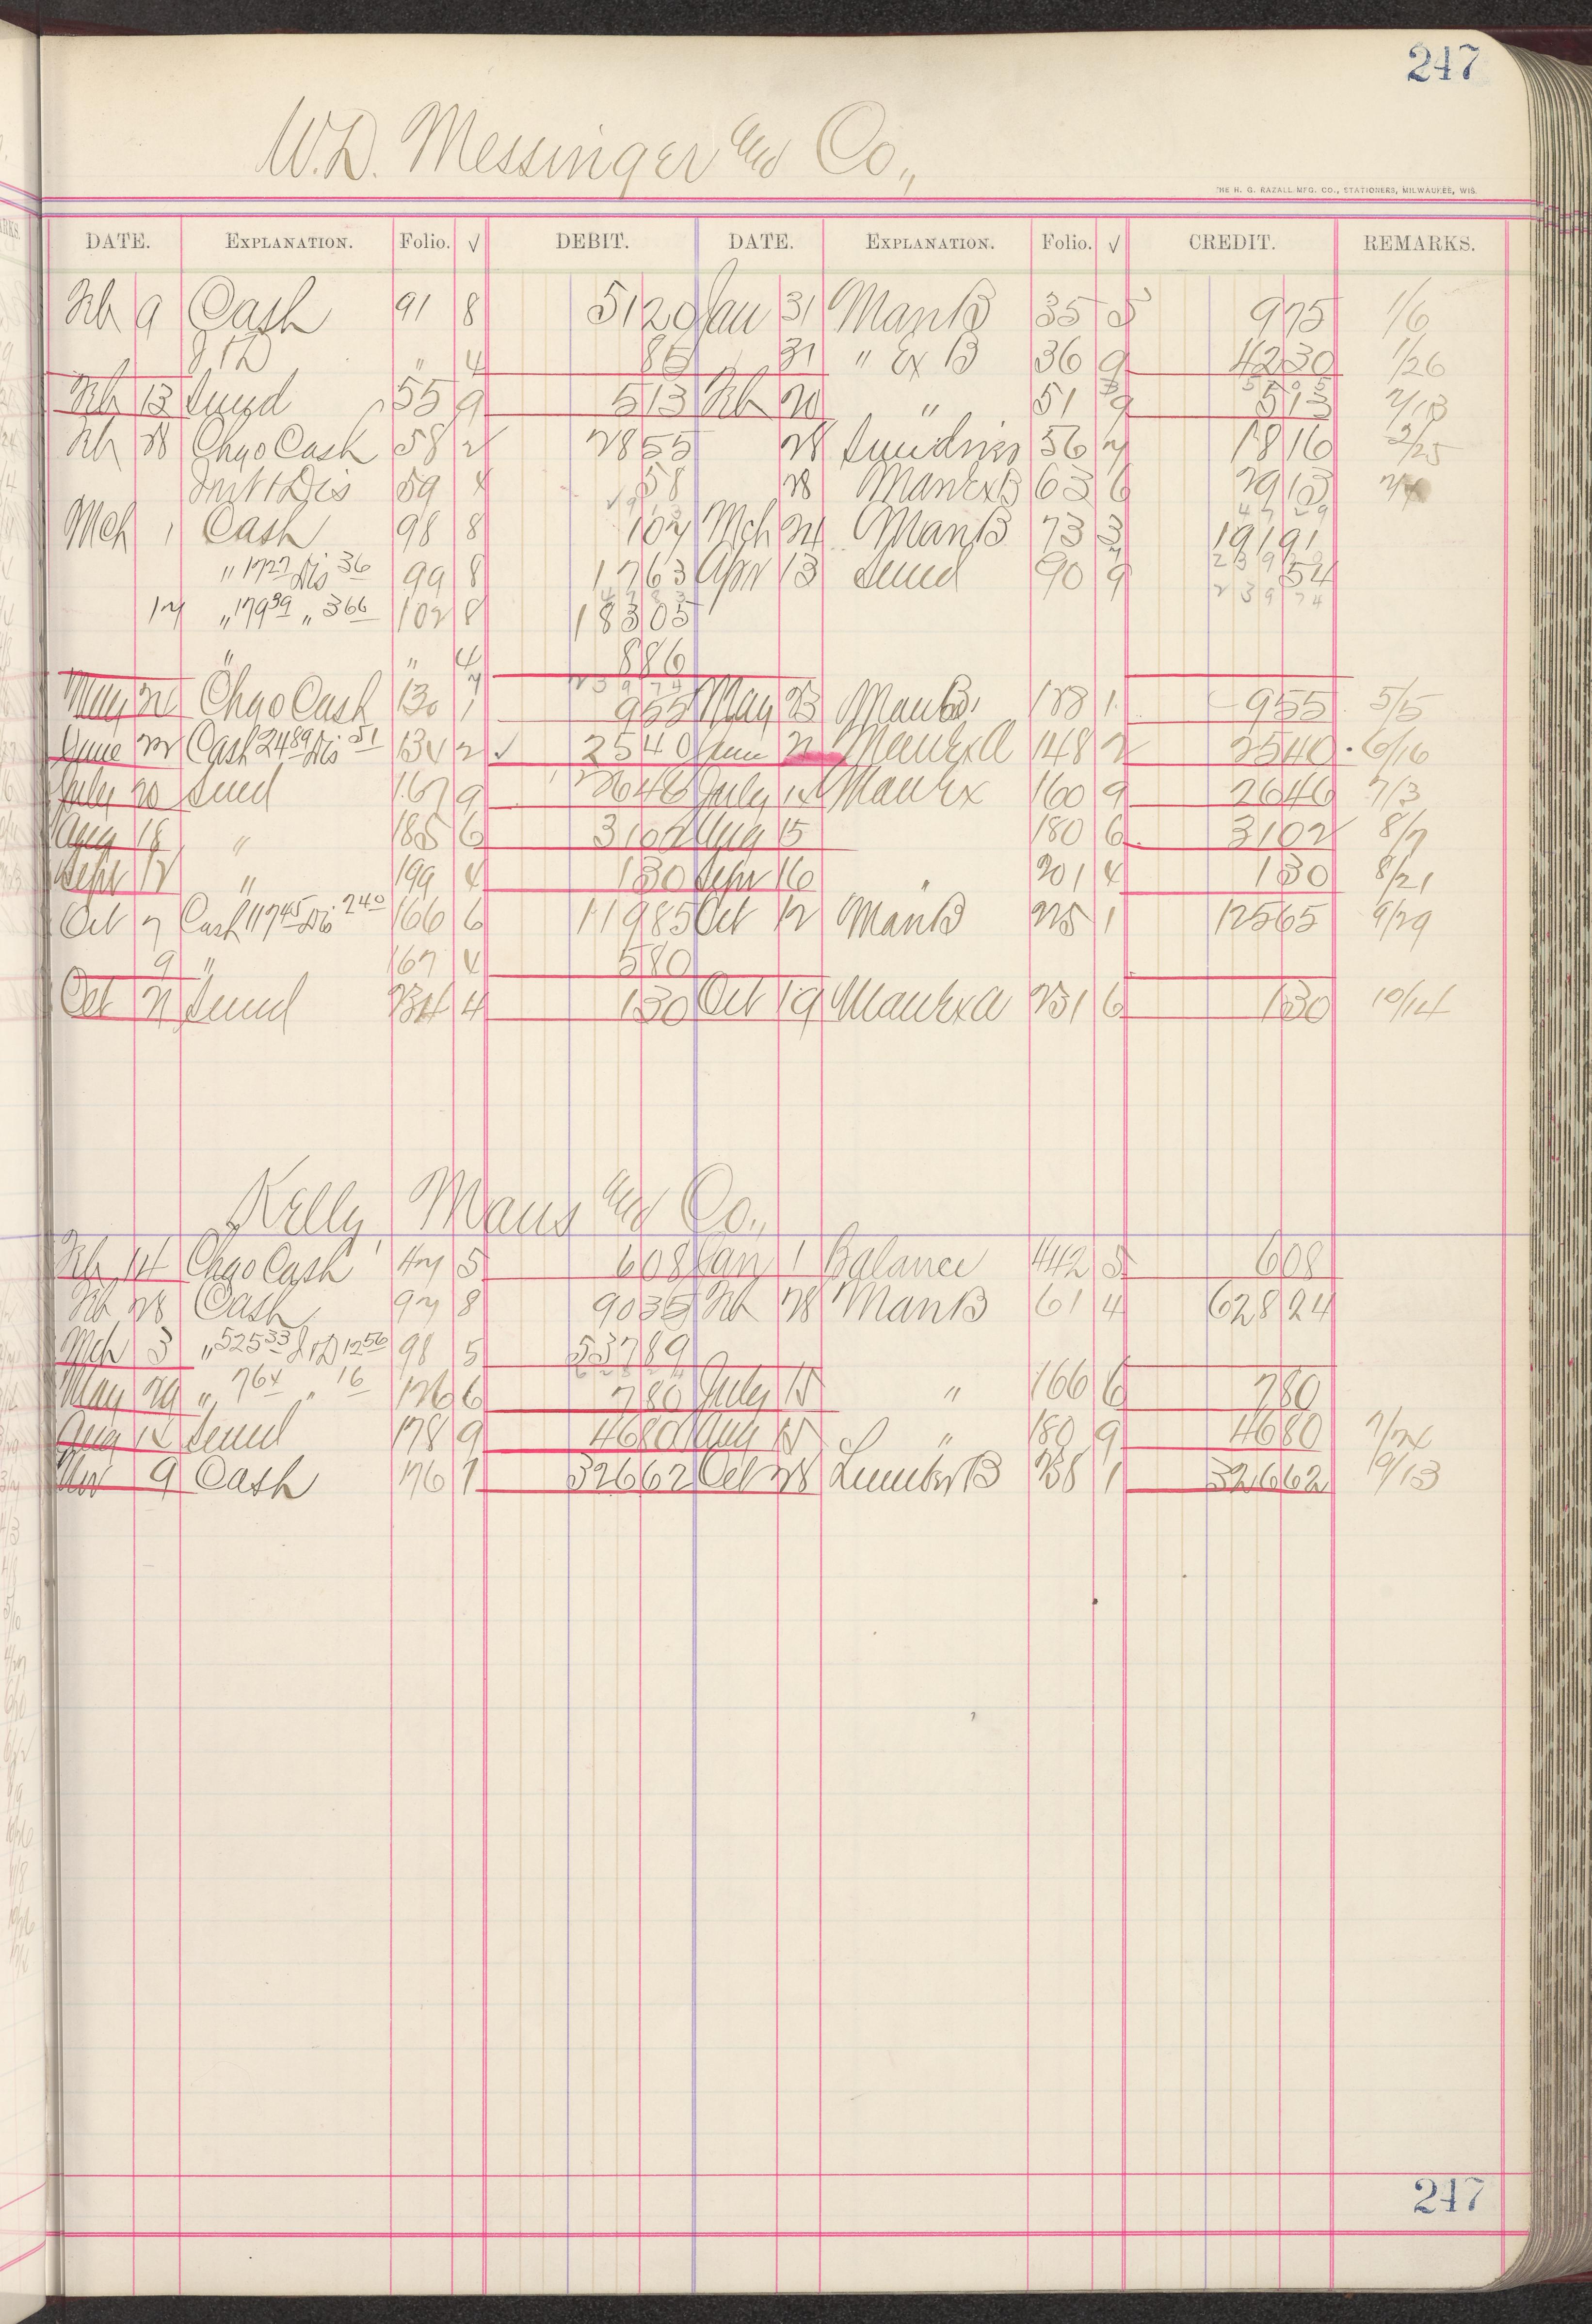 247
W.D. Messinger and Co.,
THE H. G. RAZALL MFG. CO., STATIONERS, MILWAUKEE, WIS.
DATE. EXPLANATION. Folio. √ DEBIT. DATE. EXPLANATION. Folio. √ CREDIT. REMARKS.
Feb 9 Cash 91 8 51 20 Jan 31 ManB 35 5 9 75 1/6
" 4 85 31 " Ex B 36 9 42 30 1/26
Feb 13 Sund 55 9 5 13 Feb 20 " 51 9 5 13 2/13
Feb 28 Chgo Cash 58 2 28 55 28 Sundries 56 2 18 16 2/25
Int & Dis 59 4 58 28 ManExB 63 6 29 13
Mch 1 Cash 98 8 1 02 Mch 24 ManB 73 3 191 91
" 17 27 Dis 36 99 8 17 63 Apr 13 Sund 90 9 54
12 " 179 39 " 3 66 102 8 183 05 239 74
" " 4 8 86
239 74
May 21 Chgo Cash 130 1 9 55 May 23 ManB 128 1 9 55 5/5
June 22 Cash 24 89 Dis 51 134 2 √ 25 40 June 21 ManExA 148 2 25 40 6/16
July 20 Sund 167 9 26 46 July 14 ManEx 160 9 26 46 7/3
Aug 18 " 185 6 31 02 Aug 15 180 6 31 02 8/7
Sept 12 " 199 4 1 30 Sepr 16 " 201 4 1 30 8/21
Oct 7 Cash 117 45 Dis 2 40 166 6 119 85 Oct 12 ManB 225 1 125 65 9/29
9 " 167 4 5 80
Oct 21 Sund 234 4 1 30 Oct 19 ManExA 231 6 1 30 10/14
Kelly, Maus and Co.,
Feb 14 Chgo Cash 47 5 6 08 Jan 1 Balance 442 5 6 08
Feb 28 Cash 97 8 90 35 Feb 28 ManB 61 4 628 24
Mch 3 " 525 33 I & D 12 56 98 5 537 89
628 24
May 29 " 7 64 " 16 126 6 7 80 July 15 " 166 6 7 80
Aug 14 Sund 178 9 46 80 Aug 15 " 180 9 46 80 7/24
Nov 9 Cash 176 1 326 62 Oct 28 LumberB 238 1 326 62 10/13
247